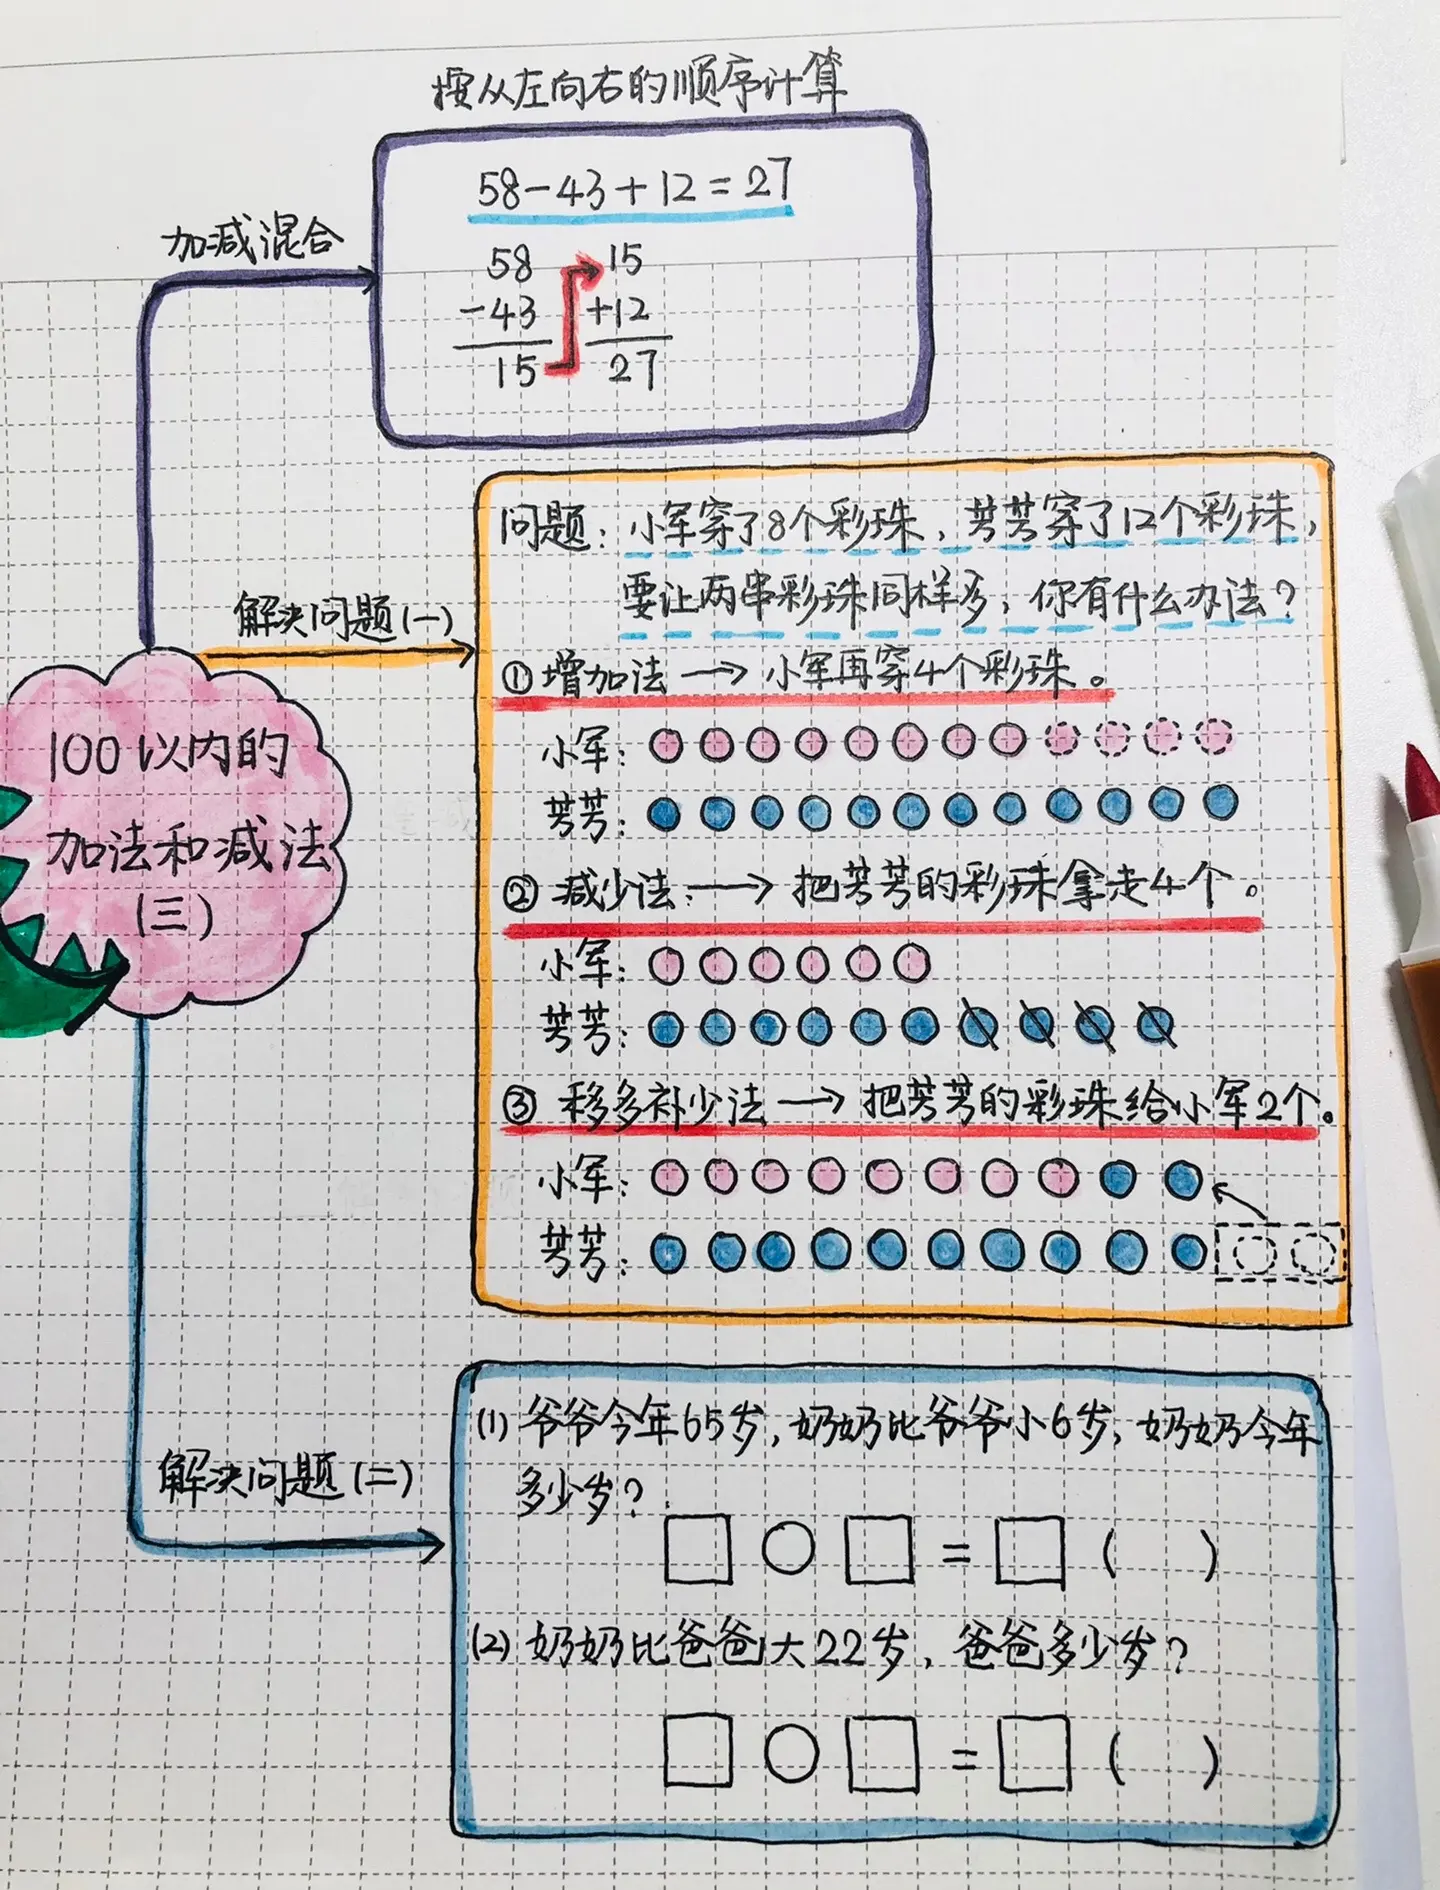 按从左向右的顺序计算
加减混合
58-43+12=27
58
-43
15
15
+12
27
解决问题(一)
问题:小军穿了8个彩珠,芳芳穿了12个彩珠,
要让两串彩珠同样多,你有什么办法?
①增加法→小军再穿4个彩珠。
小军:
芳芳:
②减少法:→把芳芳的彩珠拿走4个。
小军:
芳芳:
③移多补少法→把芳芳的彩珠给小军2个。
小军:
芳芳:
100以内的
加法和减法
(三)
解决问题(二)
(1)爷爷今年65岁,奶奶比爷爷小6岁,奶奶今年
多少岁?
□○□=□( )
(2)奶奶比爸爸大22岁,爸爸多少岁?
□○□=□( )